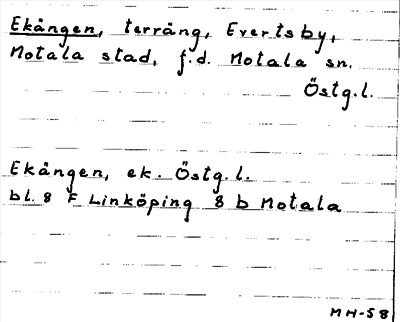 Ekången, terräng, Evertsby,
Motala stad, f.d. Motala sn.
Östg.l.
Ekången, ek. Östg.l.
bl. 8 F Linköping 8 b Motala
MH-58